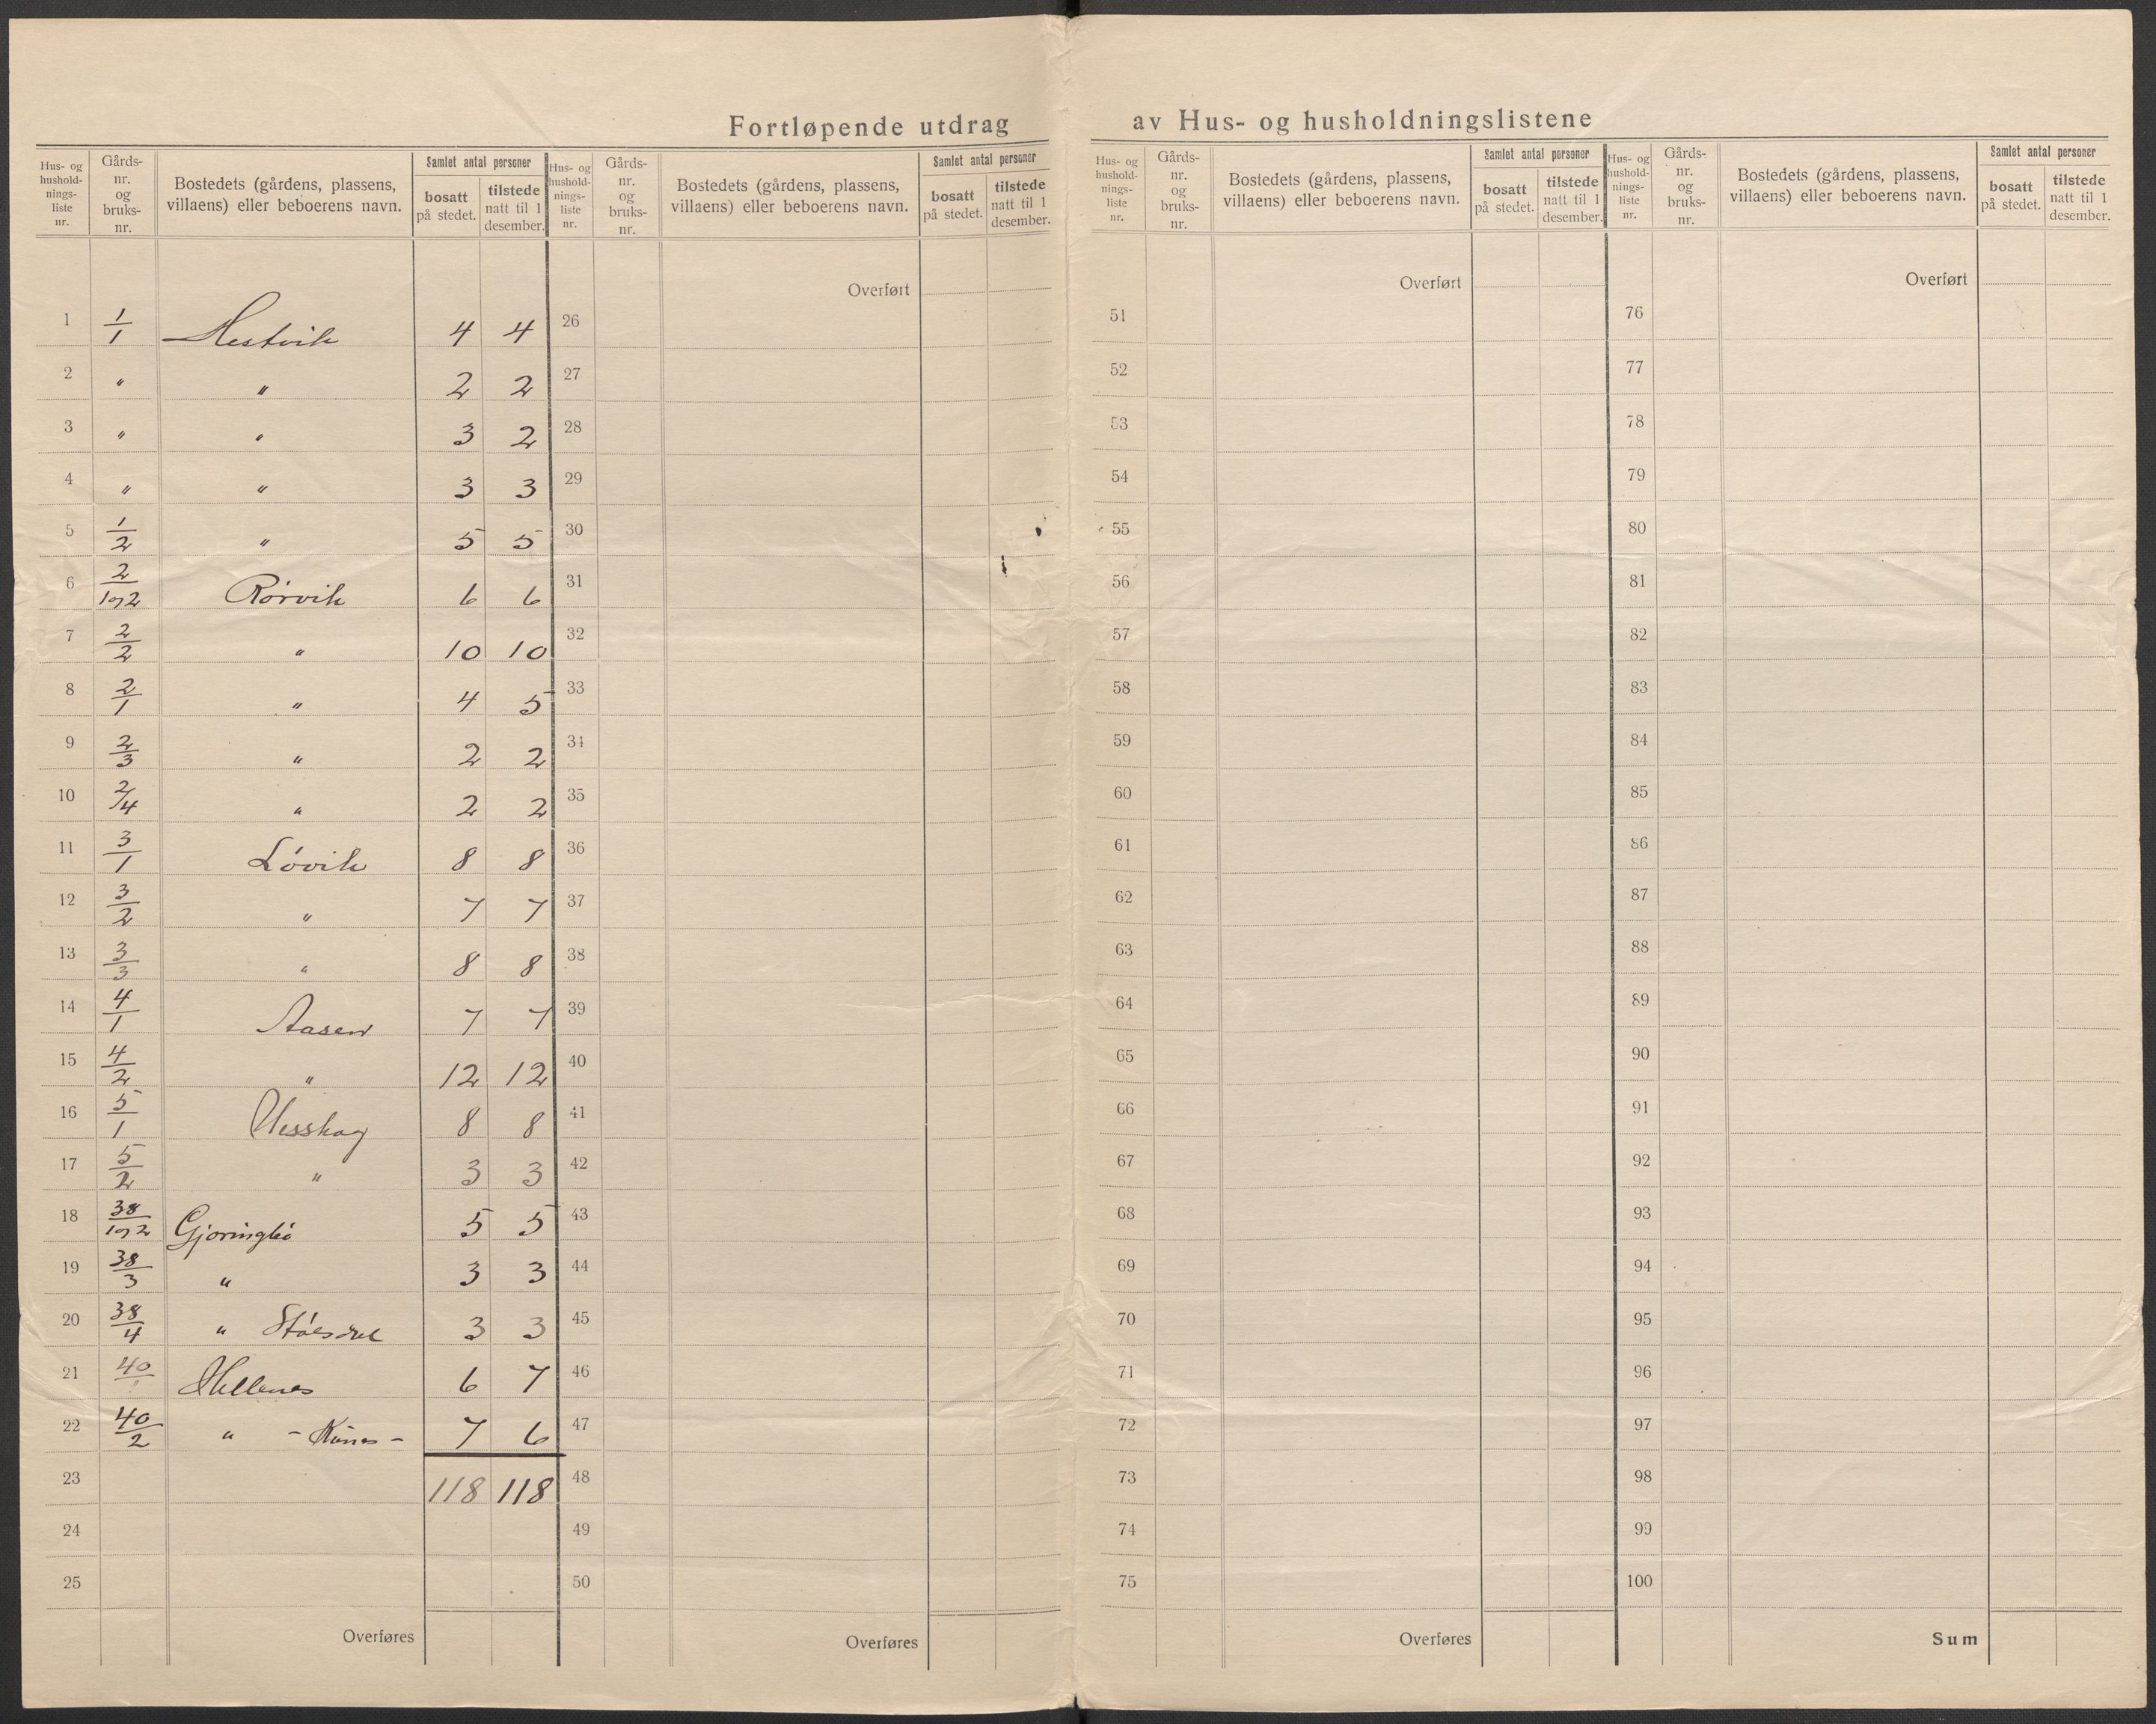 Fortløpende utdrag av Hus- og husholdningslistene
Hus- og husholdnings-liste nr. | Gårds-nr. og bruks-nr. | Bostedets (gårdens, plassens, villaens) eller beboerens navn. | Samlet antal personer | bosatt på stedet. | tilstede natt til 1 desember.
1 1/1 Hestvik 4 4
2 " " 2 2
3 " " 3 2
4 " " 3 3
5 1/2 " 5 5
6 2/1 og 2 Rørvik 6 6
7 2/2 " 10 10
8 2/1 " 4 5
9 2/3 " 2 2
10 2/4 " 2 2
11 3/1 Løvik 8 8
12 3/2 " 7 7
13 3/3 " 8 8
14 4/1 Aasen 7 7
15 4/2 " 12 12
16 5/1 8 8
17 5/2 " 3 3
18 38/1 og 2 5 5
19 38/3 " 3 3
20 38/4 " 3 3
21 40/1 Hellenes 6 7
22 40/2 " 7 6
23 118 118
24
25
Overføres
Hus- og husholdnings-liste nr. | Gårds-nr. og bruks-nr. | Bostedets (gårdens, plassens, villaens) eller beboerens navn. | Samlet antal personer | bosatt på stedet. | tilstede natt til 1 desember.
Overført
26
27
28
29
30
31
32
33
34
35
36
37
38
39
40
41
42
43
44
45
46
47
48
49
50
Overføres
Hus- og husholdnings-liste nr. | Gårds-nr. og bruks-nr. | Bostedets (gårdens, plassens, villaens) eller beboerens navn. | Samlet antal personer | bosatt på stedet. | tilstede natt til 1 desember.
Overført
51
52
53
54
55
56
57
58
59
60
61
62
63
64
65
66
67
68
69
70
71
72
73
74
75
Overføres
Hus- og husholdnings-liste nr. | Gårds-nr. og bruks-nr. | Bostedets (gårdens, plassens, villaens) eller beboerens navn. | Samlet antal personer | bosatt på stedet. | tilstede natt til 1 desember.
Overført
76
77
78
79
80
81
82
83
84
85
86
87
88
89
90
91
92
93
94
95
96
97
98
99
100
Sum